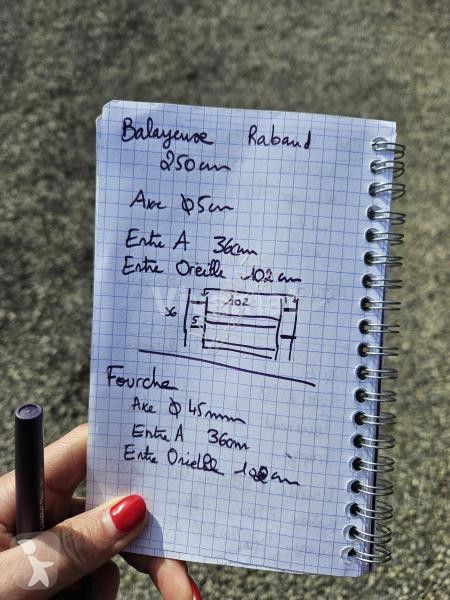 Balayeuse Rabaud
250cm
Axe φ5cm
Entre A 36cm
Entre Oreille 102cm
102
36
5
Fourche
Axe φ 45mm
Entre A 36cm
Entre Oreille cm